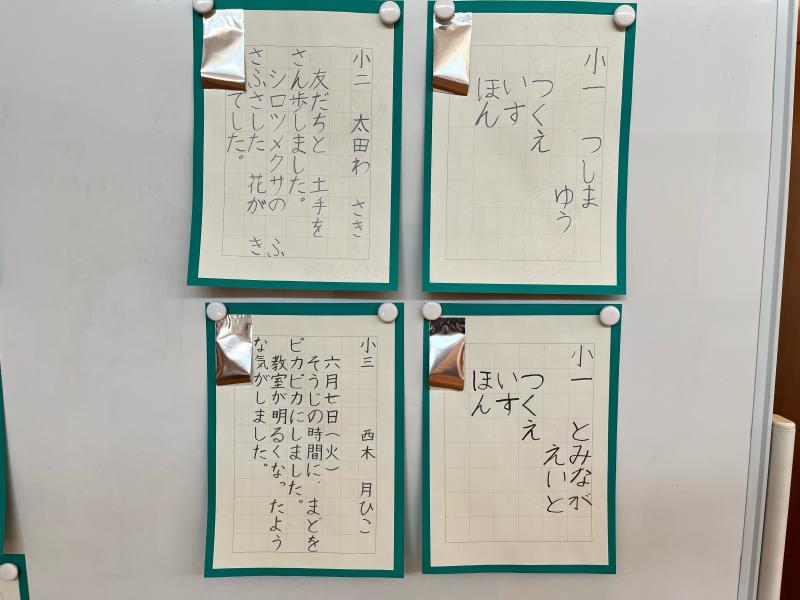 小一 つしま
ゆう
つくえ
いす
ほん
小二 太田わ さき
友だちと 土手を
さん歩しました。
シロツメクサの ふ
さふさした 花が き
でした。
小一 とみなが
えいと
つくえ
いす
ほん
小三 西木 月ひこ
六月七日(火)
そうじの時間に、まどを
ピカピカにしました。
教室が明るくなったよう
な気がしました。